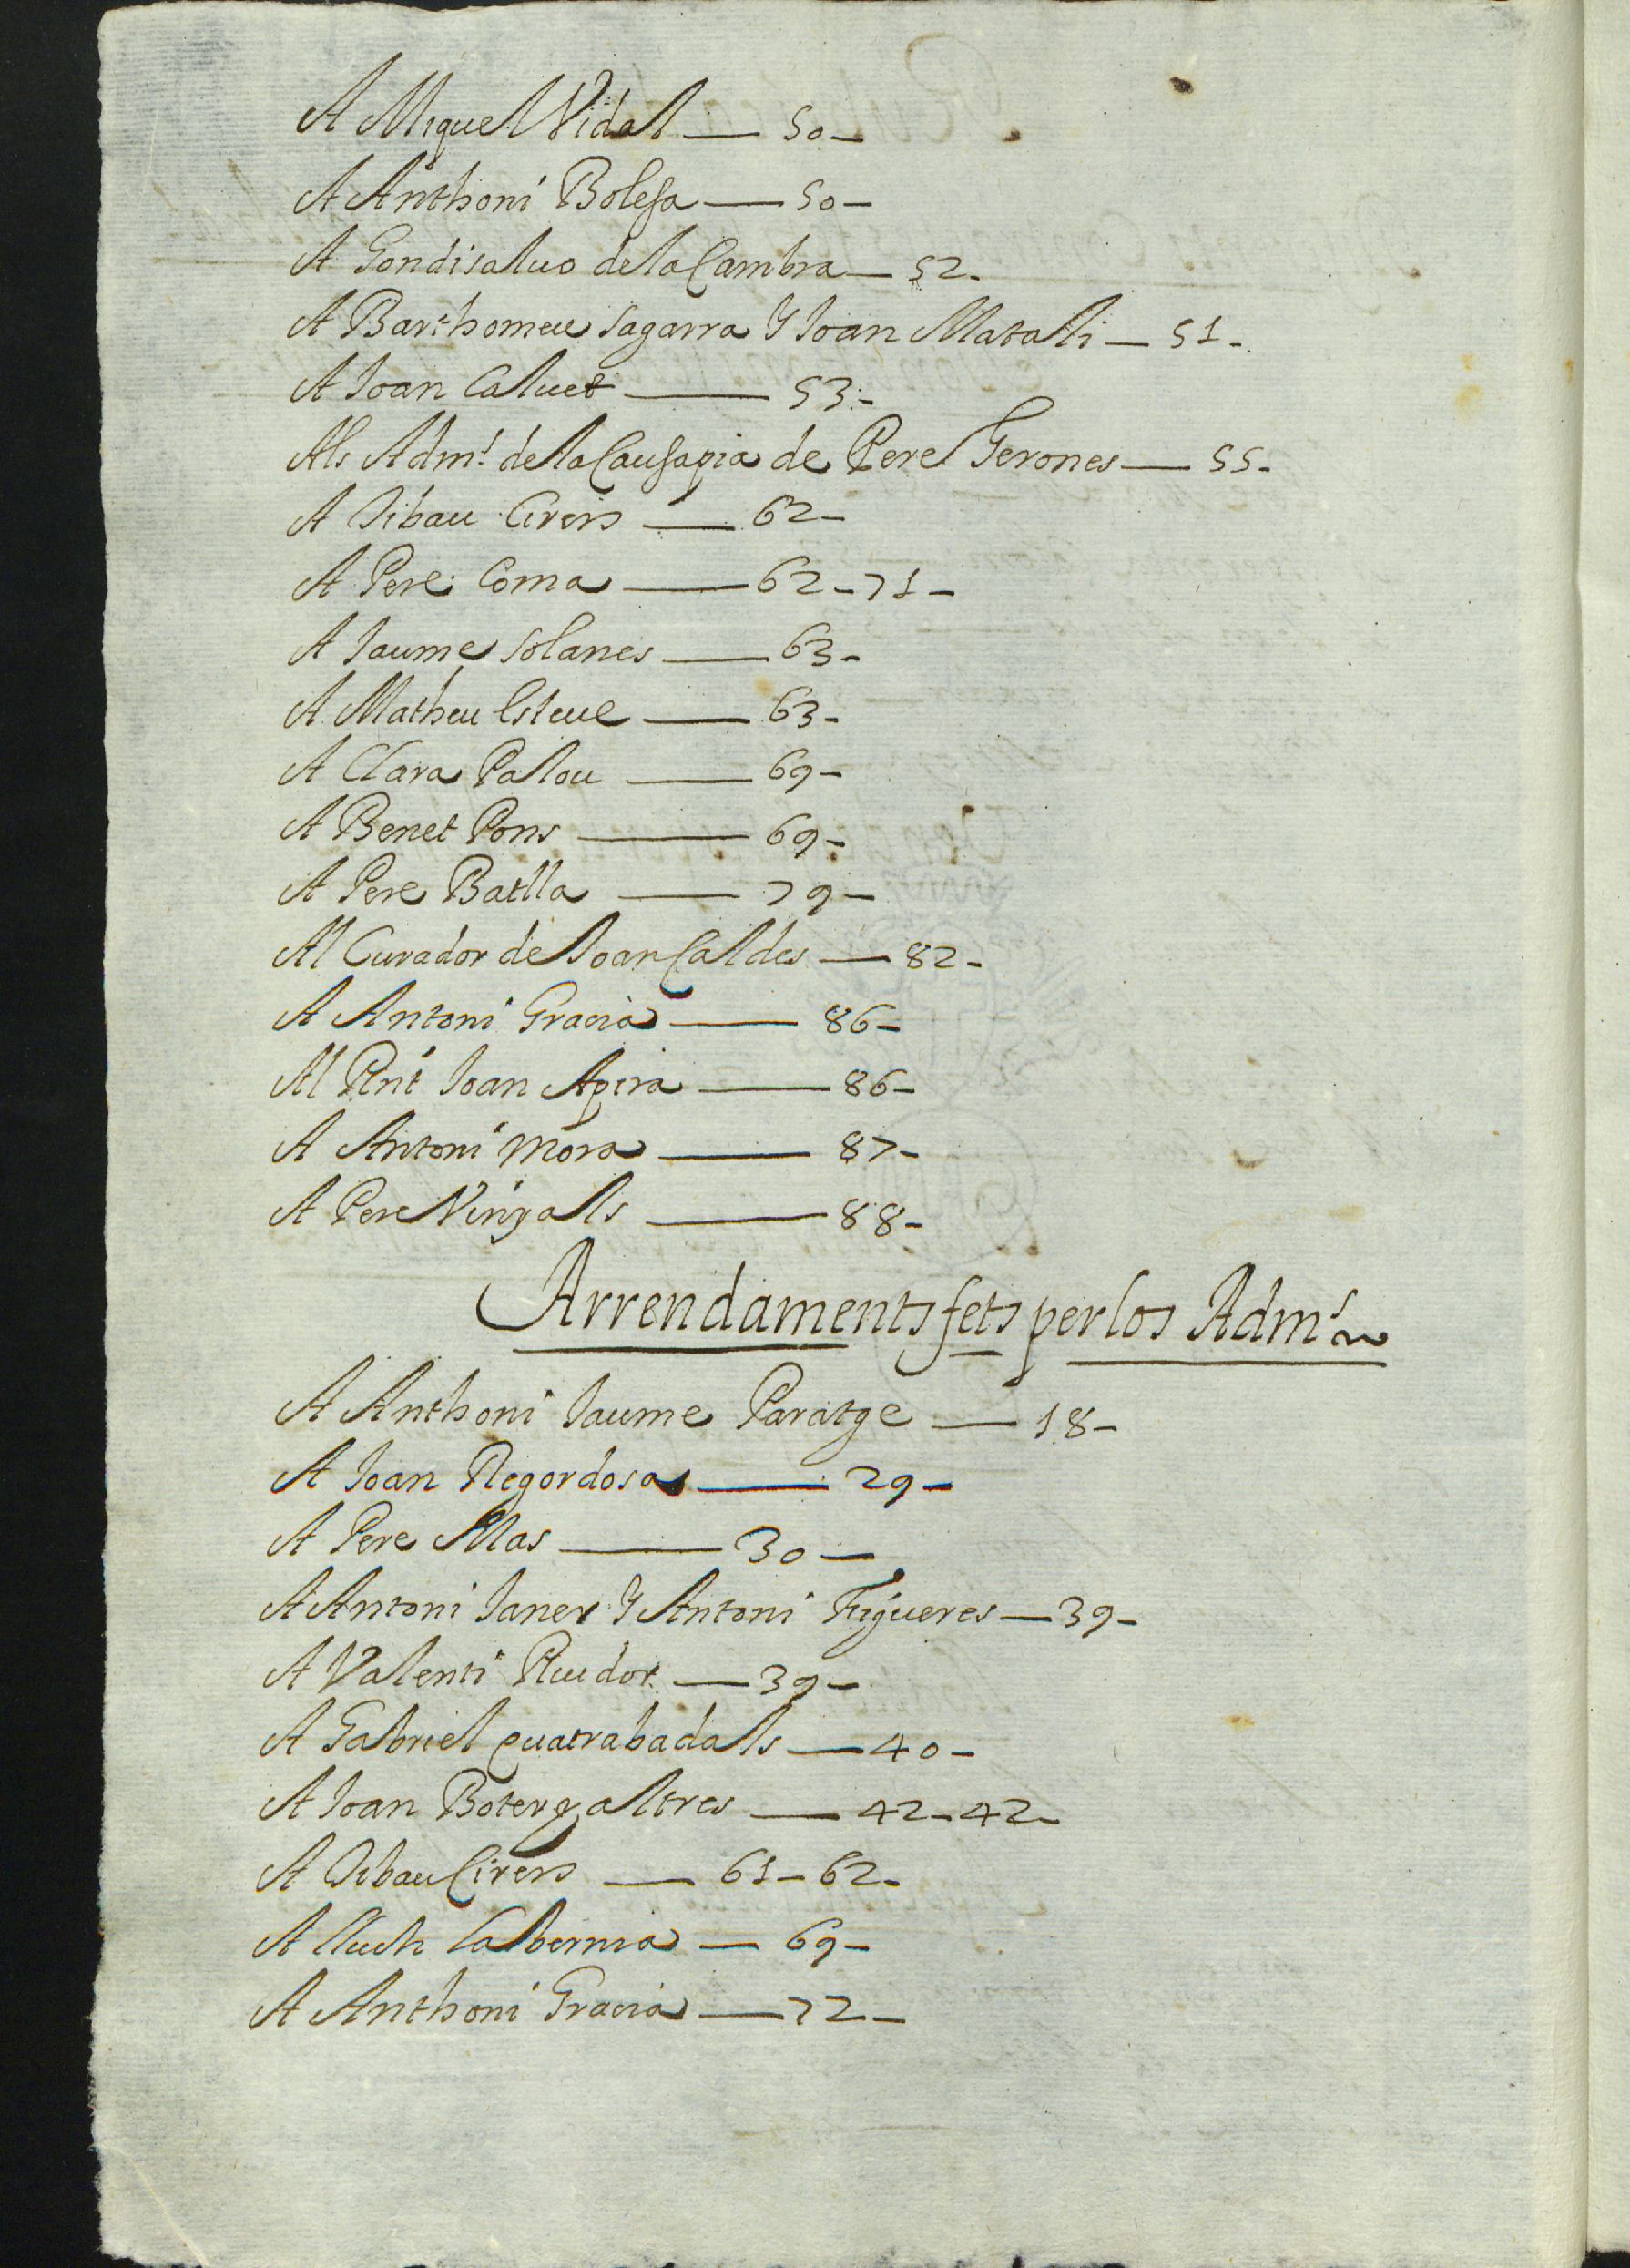 A Miquel Vidal — 50 —
A Anthoni Bolessa — 50 —
A Gondisaluo de la Cambra — 52 -
A Barthomeu Sagarra Y Joan Matali — 51 -
A Joan Caluet — 53 -
Als Adm.s de la Causapia de Pere Gerones — 55 -
A Tibau Cirers — 62 -
A Pere Coma — 62 - 71 -
A Jaume Solanes — 63 -
A Matheu Esteue — 63 -
A Clara Palou — 69 -
A Benet Pons — 69 -
A Pere Batlla — 79 -
Al Curador de Joan Caldes — 82 -
A Antoni Gracia — 86 -
Al Joan Apera — 86 -
A Antoni Mora — 87 -
A Pere Vinyals — 88 -
Arrendaments fets per los Adm.s
A Anthoni Jaume Paratge — 18 -
A Joan Regordosa — 29 -
A Pere Mas — 30 —
A Antoni Janer Y Antoni Figueres — 39 -
A Valenti Ruidor — 39 -
A Gabriel quatrabadals — 40 -
A Joan Boter y altres — 42 - 42 -
A Tibau Cirers — 61 - 62 -
A Lluch Calbernia — 69 -
A Anthoni Gracia — 72 -